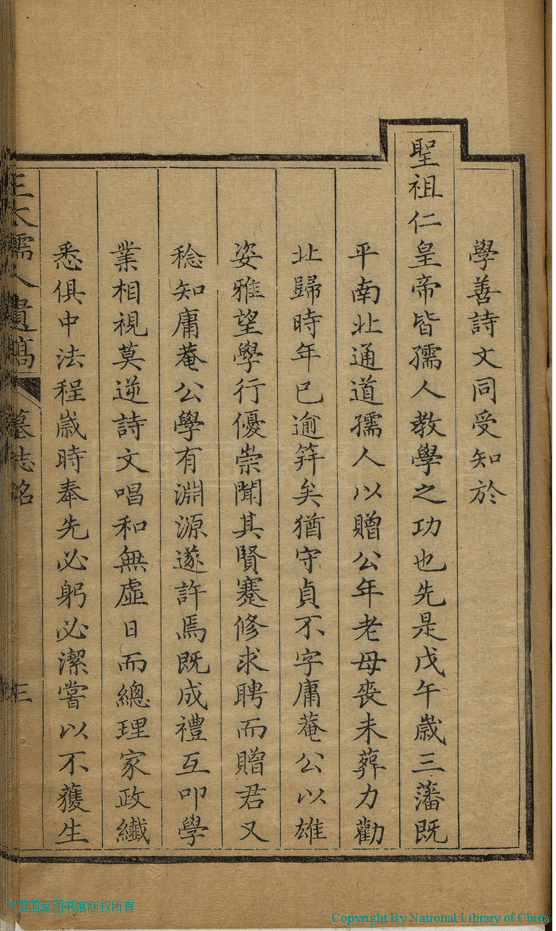 學善詩文同受知於
聖祖仁皇帝皆孺人教學之功也先是戊午歲三藩既
平南北通道孺人以贈公年老母喪未葬力勸
北歸時年已逾笄矣猶守貞不字庸菴公以雄
姿雅望學行優崇聞其賢蹇修求聘而贈君又
稔知庸菴公學有淵源遂許焉既成禮互叩學
業相視莫逆詩文唱和無虛日而總理家政纖
悉俱中法程歲時奉先必躬必潔嘗以不獲生
王太孺人遺稿 墓志銘 三
中国国家图书馆版权所有
Copyright By National Library of China